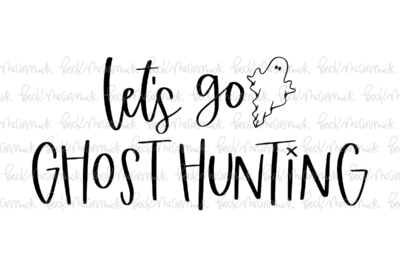 let's go
GHOST HUNTING